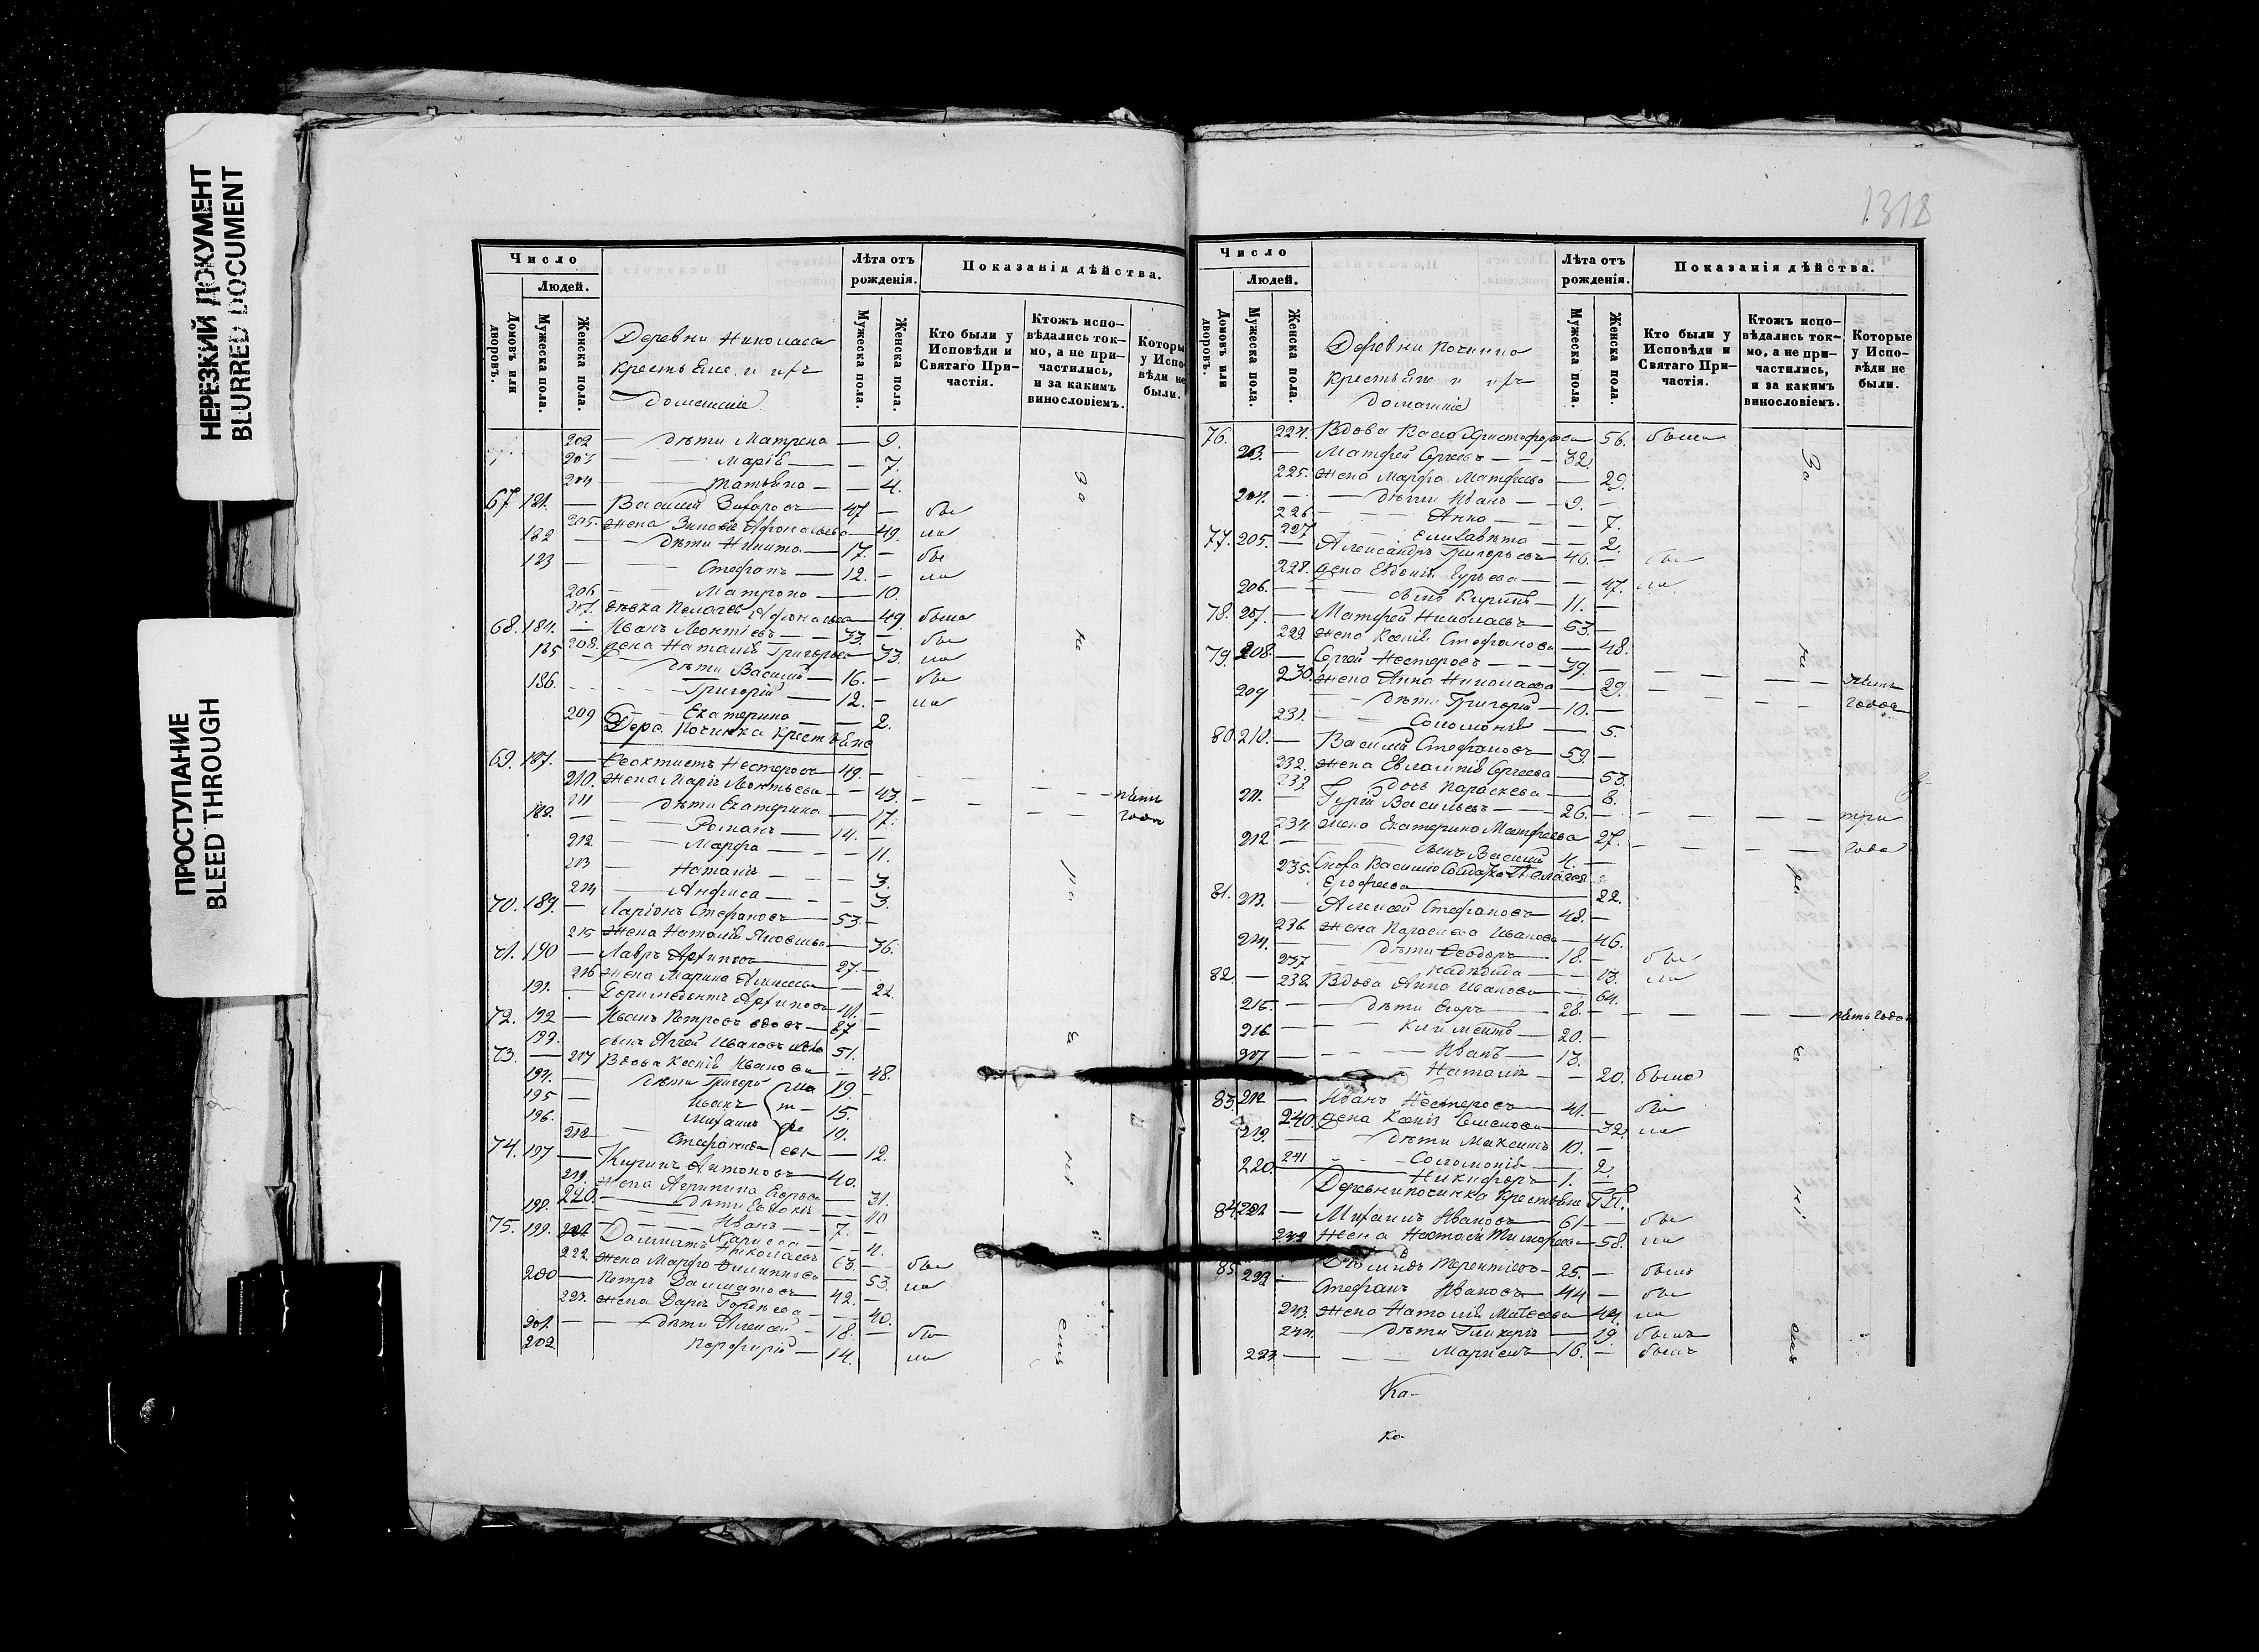 НЕРЕЗКИЙ ДОКУМЕНТ
BLURRED DOCUMENT
ПРОСТУПАНИЕ
BLEED THROUGH
Число
Людей.
Домовъ или дворовъ.
Мужеска пола.
Женска пола.
Деревни Николаева
крестьяне и ихъ
домашніе
Лѣта отъ рожденія.
Мужеска пола.
Женска пола.
Показанія дѣйства.
Кто были у Исповѣди и Святаго Причастія.
Ктожъ исповѣдались токмо, а не причастились, и за какимъ винословіемъ.
Которые у Исповѣди не были.
202 — дѣти Матрена — 9.
203 — Марія — 7.
204 — Татьяна — 4.
67 181. — Василій Захаровъ 47 — бы
205. жена Зиновія Афонасьева — 49. ла
182 — дѣти Никита — 17. — бы
183 — Стефанъ — 12. — ла
206 — Матрона — 10.
207. дѣвка Пелагея Афонасьева — 49. была
68. 184. — Иванъ Леонтіевъ — 33. — бы
185 208. жена Наталія Григорьева — 33. ла
дѣти Василій — 16. — бы
186. — Григорій — 12. — ла
209 — Екатерина — 2.
Дерев. Починка Крестьяне
69. 187. — Феоктистъ Нестеровъ — 49. —
210. жена Марія Леонтьева — 43.
211 — дѣти Екатерина — 17. пять
188. — Романъ — 14. — года
212 — Марфа — 11.
213 — Наталія — 3.
214 — Анфиса — 3.
70. 189. — Ларіонъ Стефановъ — 53. —
215 жена Наталія Яковлева — 36.
71. 190 — Лавръ Архиповъ — 27. —
216 жена Марина Алексеева — 22.
191. — Архиповъ 14. —
72. 192 — Иванъ Петровъ вдовъ — 87 —
193. сынъ Аггей Ивановъ 51.
73. — 217 Вдова Ксенія Иванова — 48.
194. — дѣти Григорій 19. —
195 — Иванъ 15.
196. Михаилъ 10.
218 Стефанида — 12.
74. 197 — Кирилъ Антоновъ — 40.
219. жена Агрипина Егорова — 31.
220. — дѣти Евдокія — 10
198. — Иванъ — 7. —
75. 199. 221 Далматъ Николаевъ 63. — бы
222. жена Марфа Филиппова — 53 ла
200 — Петръ Далматовъ — 42. —
223. жена Дарія Гордѣева — 40.
201. — дѣти Алексей — 18. — бы
202 Порфирій — 14. ла
За
не
ра
де
ні
емъ
1318
Число
Людей.
Домовъ или дворовъ.
Мужеска пола.
Женска пола.
Деревни Починка
крестьяне и ихъ
домашніе
Лѣта отъ рожденія.
Мужеска пола.
Женска пола.
Показанія дѣйства.
Кто были у Исповѣди и Святаго Причастія.
Ктожъ исповѣдались токмо, а не причастились, и за какимъ винословіемъ.
Которые у Исповѣди не были.
76. 224. Вдова Христофорова 56. была
203. — Матфей Сергеевъ — 32.
225. жена Марфа Матфеева — 29.
204. — дѣти Иванъ — 9. —
226 — Анна — 7.
227 — Елизавѣта — 2.
77. 205. — Александръ Григорьевъ — 46. — бы
228. жена Евдокія Гурьева — 47. ла
206. — сынъ Кирилъ — 11. —
78. 207. — Матфей Николаевъ 63. —
229 жена Ксенія Стефанова — 48.
79. 208. — Сергей Нестеровъ — 39. —
230. жена Анна Николаева — 29. — пять
209 — дѣти Григорій — 10. — годовъ
231. — Соломонія — 5.
80 210. — Василій Стефановъ — 59. —
232. жена Евлампія Сергеева — 53.
233 дочь Параскева — 8.
211. — Гурій Васильевъ — 26. — три
234. жена Екатерина Матфеева 27. года
212. — сынъ Василій 4. —
235. Сноха Василія Солдатка Пелагея
Ерофеева — 22.
81. 213. — Алексей Стефановъ — 48. —
236. жена Параскева Иванова — 46.
214. — дѣти Феодоръ — 18. — бы
237 — Надежда — 13. ла
82. — 238. Вдова Анна Иванова — 64.
215. — дѣти Егоръ — 28. — пять годовъ
216. — Климентъ 20. —
217 — Иванъ — 13.
Наталія — 20. была
83. 218 — Иванъ Нестеровъ — 41. — бы
240. жена Ксенія Семенова — 32. ла
219. — дѣти Максимъ 10. —
241 — Соломонія — 2.
220. — Никифоръ — 1. —
Деревни Починка Крестьяне
84. 221 — Михаилъ Ивановъ — 61 — бы
242 жена Настасія Тимофеева — 58. ла
85. 222. — Терентіевъ — 25. — былъ
Стефанъ Ивановъ — 44 — бы
243. жена Наталія Матвеева 44. ла
244. — дѣти Гликерія — 19. была
223 — Маркелъ — 16. — былъ
За
не
ра
де
ні
емъ
Ка-
ка